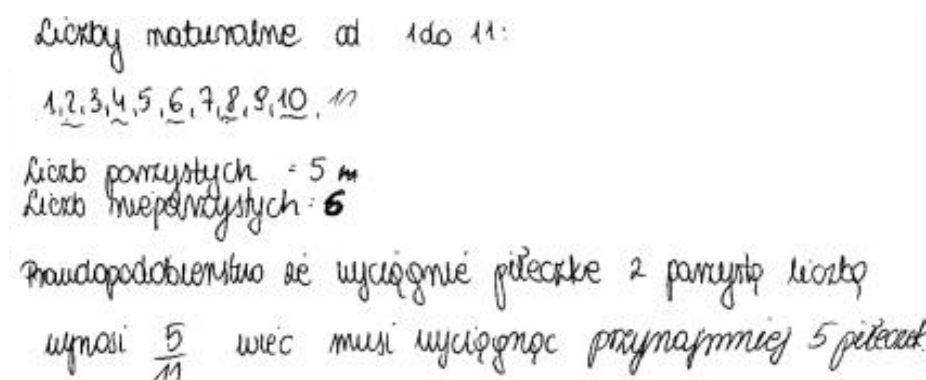 Liczby naturalne od 1do 11:
1,2,3,4,5,6,7,8,9,10,11
Liczb parzystych = 5
Liczb nieparzystych: 6
Prawdopodobieństwo że wyciągnie piłeczke z parzystą liczbą
wynosi 5/11 więc musi wyciągnąc przynajmniej 5 piłeczek.